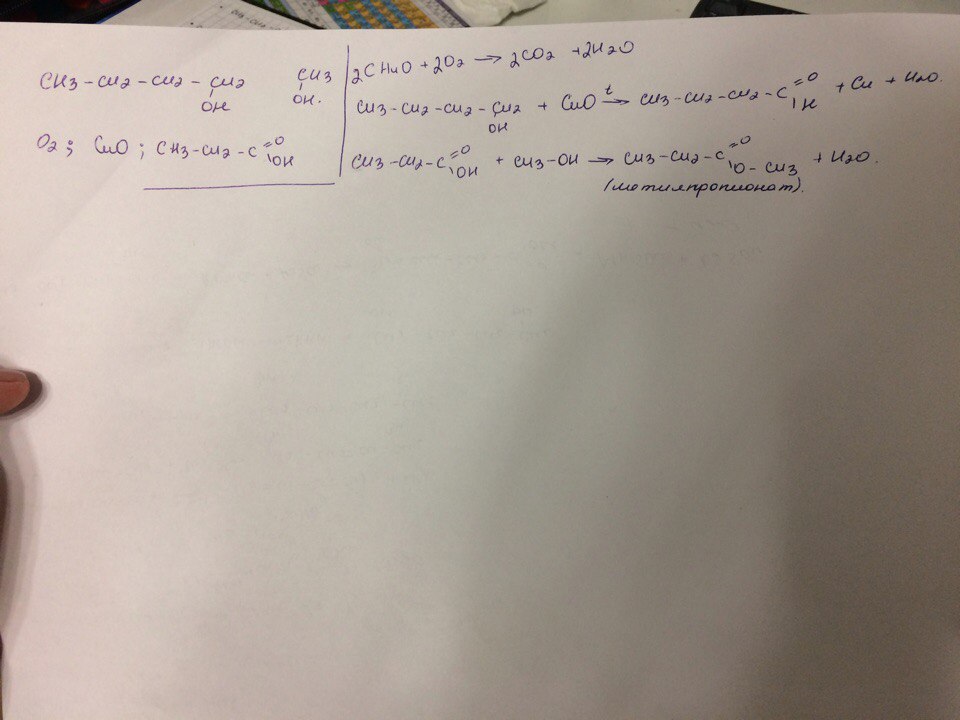 CH3-CH2-CH2-CH2 CH3
OH OH.
O2; CuO; CH3-CH2-C=O
OH
2CH4O + 2O2 → 2CO2 + 2H2O
CH3-CH2-CH2-CH2 + CuO t→ CH3-CH2-CH2-C=O + Cu + H2O.
OH H
CH3-CH2-C=O + CH3-OH → CH3-CH2-C=O + H2O.
OH O-CH3
(метилпропионат).